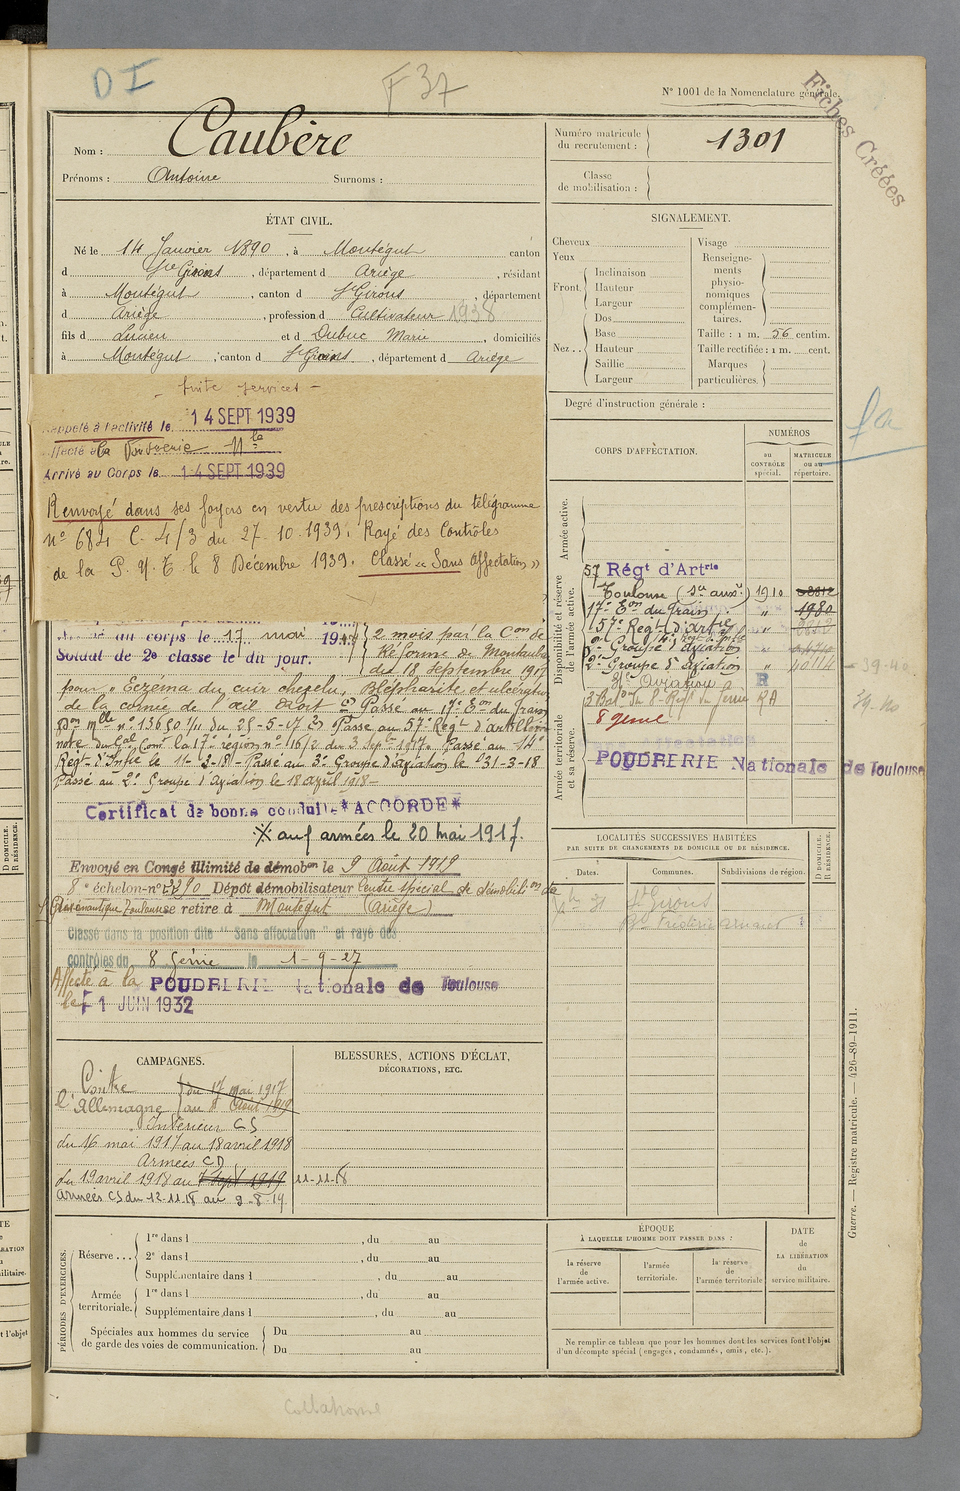 DI
F 37
N° 1001 de la Nomenclature générale.
Fiches Créées
Nom : Caubère
Prénoms : Antoine Surnoms :
Numéro matricule du recrutement : 1301
Classe de mobilisation :
ÉTAT CIVIL.
Né le 14 Janvier 1890, à Montégut canton
d St Girons, département d Ariège, résidant
à Montégut, canton d St Girons, département
d Ariège, profession d Cultivateur 1938
fils d Lucien et d Dubuc Marie, domiciliés
à Montégut, canton d St Girons, département d Ariège
SIGNALEMENT.
Cheveux
Yeux
Front. Inclinaison
Hauteur
Largeur
Nez... Dos
Base
Hauteur
Saillie
Largeur
Visage
Renseignements physionomiques complémentaires.
Taille : 1 m. 56 centim.
Taille rectifiée : 1 m. cent.
Marques particulières.
Degré d'instruction générale :
suite services
Rappelé à l'activité le 14 SEPT 1939
Affecté à la Poudrerie Nle
Arrivé au Corps le 14 SEPT 1939
Renvoyé dans ses foyers en vertu des prescriptions du télégramme
n° 684 C. 4/3 du 27.10.1939. Rayé des Contrôles
de la P.N.T. le 8 Décembre 1939. Classé « Sans affectation »
au corps le 17 mai 19
Soldat de 2e classe le dit jour.
2 mois par la Con de
Réforme de Montauban
du 18 septembre 1917
pour « Eczéma du cuir chevelu, Blépharite et ulcération
de la cornée de l'œil droit » Passé au 17e Eon du Train
Don mlle n° 13690 1/11 du 25-5-17 Passé au 57e Régt d'artillerie
note du Gal Comt la 17e région n° 116/2 du 3 Sept 1917. Passé au 14e
Régt d'Infie le 11-12-18 - Passé au 3e Groupe d'aviation le 31-3-18
Passé au 2e Groupe d'aviation le 18 avril 1918 -
Certificat de bonne conduite *ACCORDÉ*
auf armées le 20 mai 1917.
Envoyé en Congé illimité de démobon le 9 Août 1919
8e échelon n° 2390 Dépôt démobilisateur Centre spécial de démobilisation de
l'Aéronautique Toulouse se retire à Montégut (Ariège)
Classé dans la position dite "Sans affectation" et rayé des
contrôles du 8 Génie le 1-9-27
Affecté à la POUDRERIE Nationale de Toulouse
le 1 JUIN 1932
CORPS D'AFFECTATION.
NUMÉROS
au CONTRÔLE spécial.
MATRICULE ou au répertoire.
Armée active.
Disponibilité et réserve de l'armée active.
Armée territoriale et sa réserve.
57 Régt d'Artrie
Toulouse (Sce auxe) 1910
17e Eon du Train " 1980
57e Régt d'artie "
2e Groupe d'aviation " 10114
d'Aviation R
3 Baton du 8e Régt du Génie RA
8 génie
Affectation
POUDRERIE Nationale de Toulouse
39-40
LOCALITÉS SUCCESSIVES HABITÉES
PAR SUITE DE CHANGEMENTS DE DOMICILE OU DE RÉSIDENCE.
Dates.
Communes.
Subdivisions de région.
D DOMICILE.
R RÉSIDENCE.
31 St Girons
Bd Frédéric Arnaud
CAMPAGNES.
Contre l'Allemagne
du 17 mai 1917
au 8 Août 1919
Intérieur CS
du 16 mai 1917 au 18 avril 1918
Armées CD
du 19 avril 1918 au 7 Sept 1919 11-11-18
Armées CS du 12-11-18 au 9-8-19.
BLESSURES, ACTIONS D'ÉCLAT,
DÉCORATIONS, ETC.
PÉRIODES D'EXERCICES.
Réserve... 1re dans l , du au
2e dans l , du au
Supplémentaire dans l , du au
Armée territoriale. 1re dans l , du au
Supplémentaire dans l , du au
Spéciales aux hommes du service de garde des voies de communication. Du au
Du au
ÉPOQUE
À LAQUELLE L'HOMME DOIT PASSER DANS :
la réserve de l'armée active.
l'armée territoriale.
la réserve de l'armée territoriale
DATE de LA LIBÉRATION du service militaire.
Ne remplir ce tableau que pour les hommes dont les services font l'objet
d'un décompte spécial (engagés, condamnés, omis, etc.).
Guerre. — Registre matricule. — 426-89-1911.